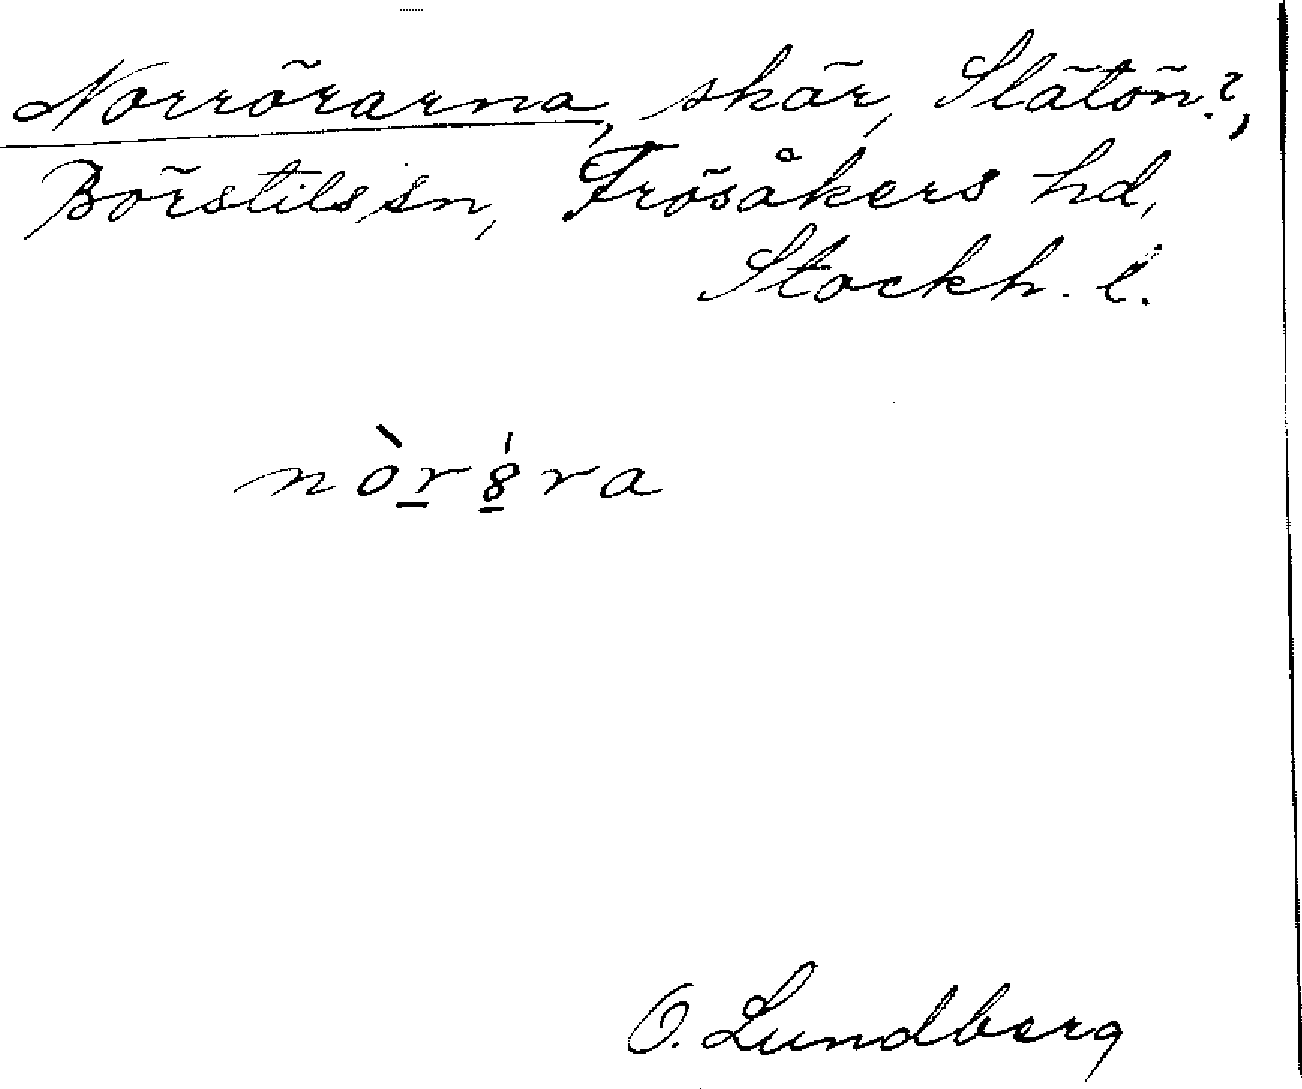 Norrörarna, skär, Slätön?,
Börstils sn, Frösåkers hd,
Stockh. l.
O. Lundberg